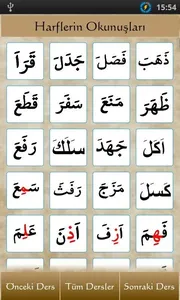 15:54
Harflerin Okunuşları
ذَهَبَ فَصَلَ جَدَلَ قَرَاَ
ظَهَرَ مَنَعَ سَفَرَ قَطَعَ
اَكَلَ جَهَدَ سَلَكَ رَفَعَ
كَسَلَ مَزَجَ رَفَثَ سَمِعَ
فَهِمَ اَزِفَ اَذِنَ عَلِمَ
Önceki Ders Tüm Dersler Sonraki Ders